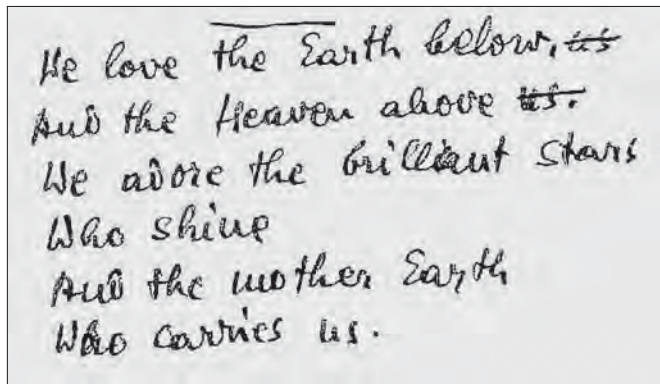 We love the Earth below, us
And the Heaven above us.
We adore the brilliant stars
Who shine
And the mother Earth
Who carries us.